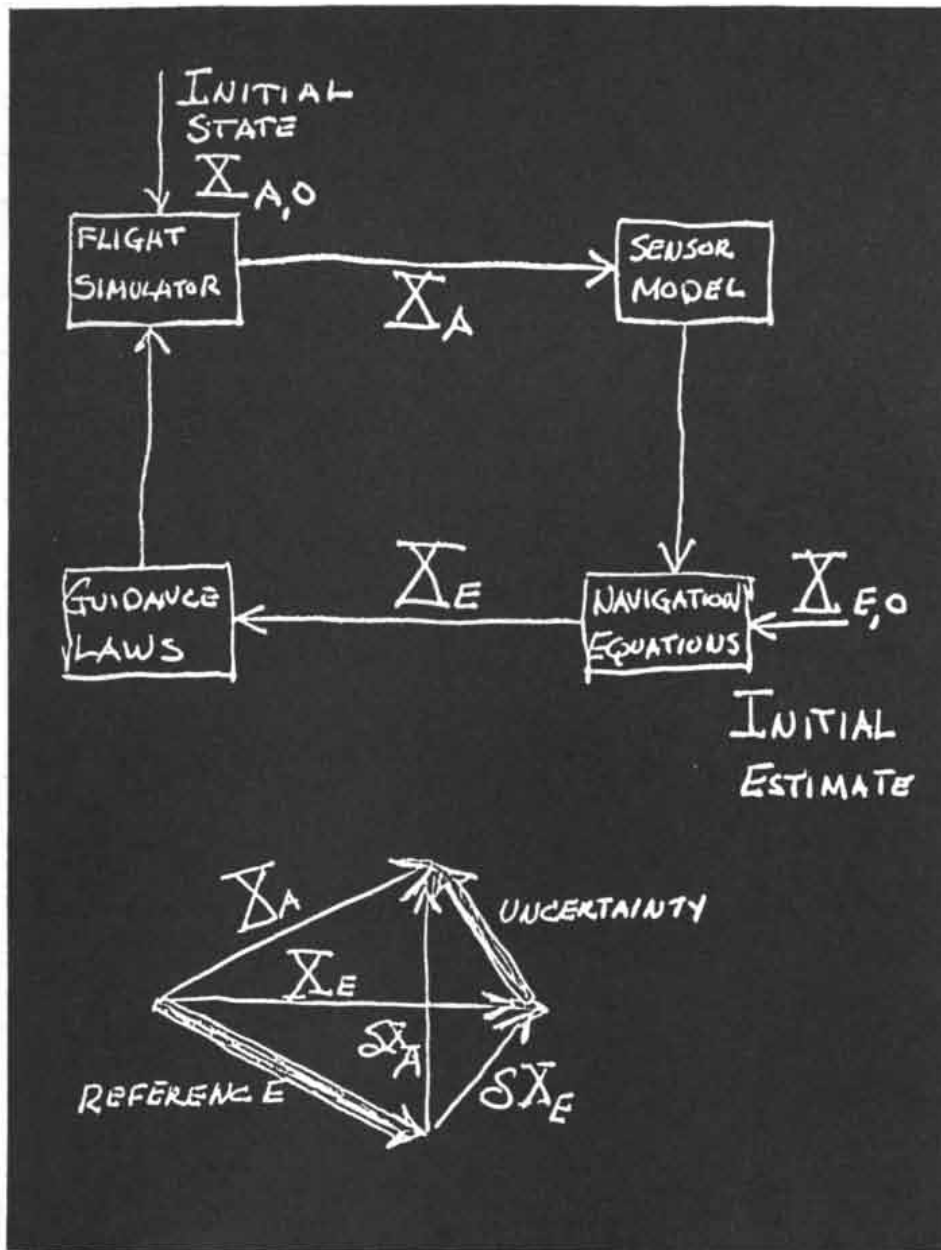 INITIAL
STATE
X A,0
FLIGHT
SIMULATOR
X A
SENSOR
MODEL
GUIDANCE
LAWS
X E
NAVIGATION
EQUATIONS
X E,0
INITIAL
ESTIMATE
X A
UNCERTAINTY
X E
δX A
δX E
REFERENCE